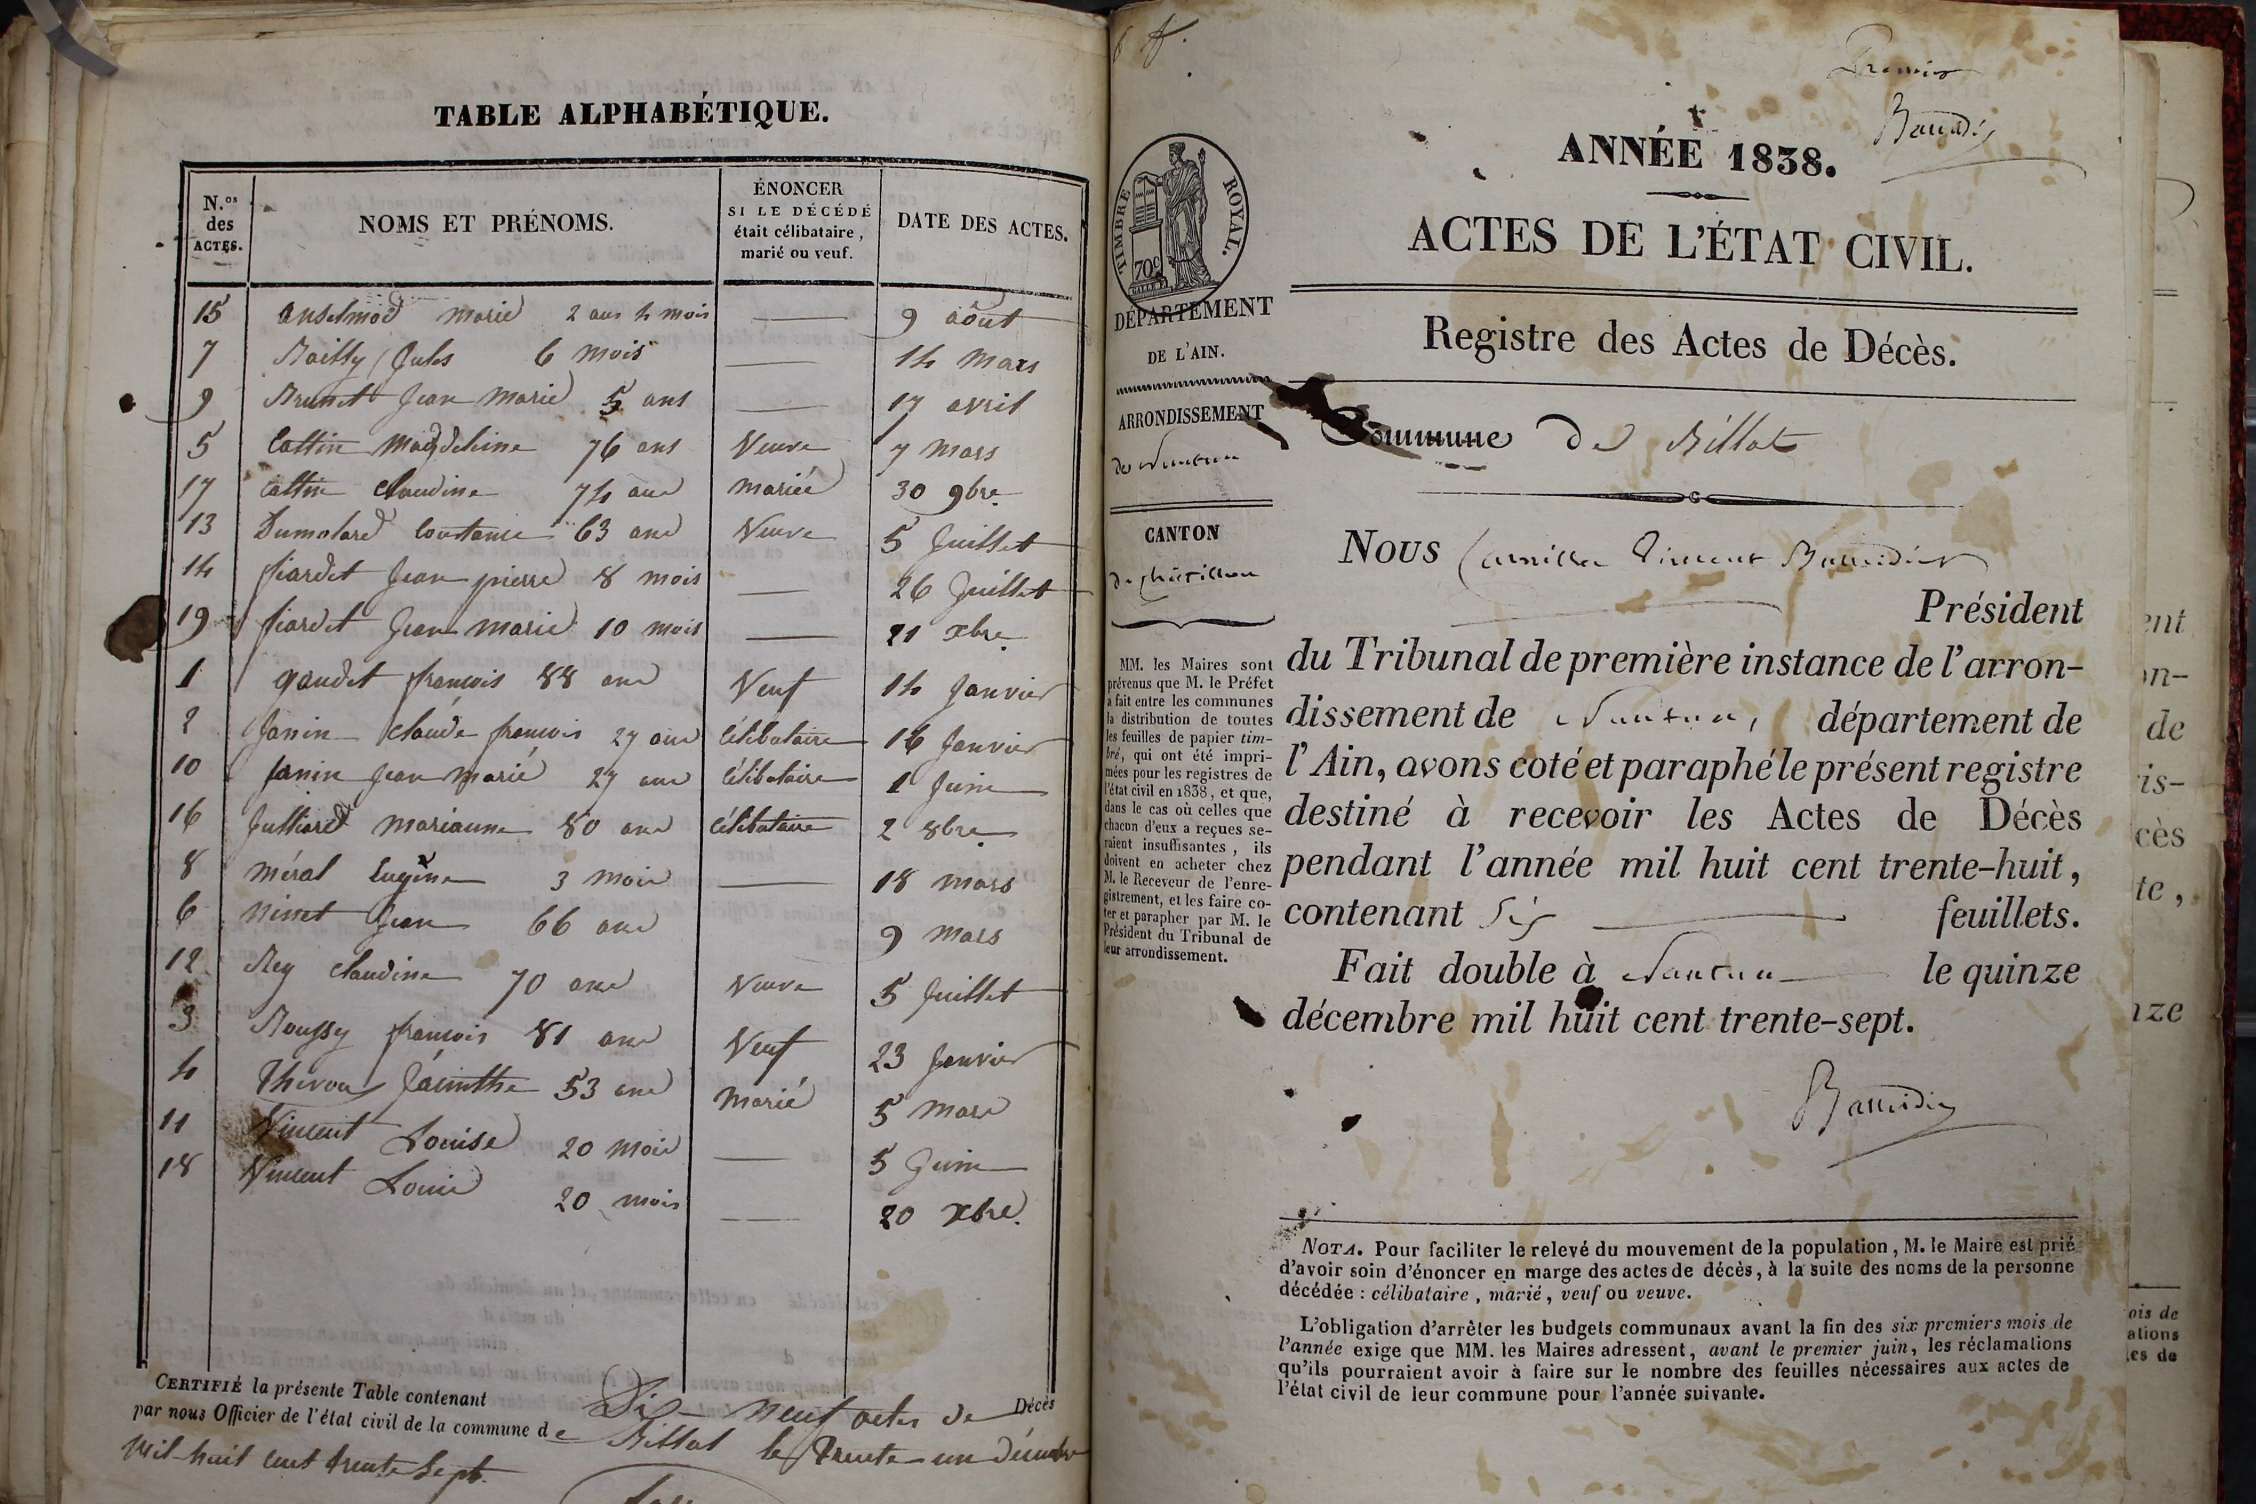 TABLE ALPHABÉTIQUE.
N.os des ACTES.
NOMS ET PRÉNOMS.
ÉNONCER
SI LE DÉCÉDÉ
était célibataire,
marié ou veuf.
DATE DES ACTES.
15 anselmod marie 2 ans 4 mois — 9 août
7 Bailly Jules 6 mois — 14 mars
9 Brunet Jean marie 5 ans — 17 avril
5 Cattin Magdeleine 76 ans Veuve 7 mars
17 Cattin Claudine 74 ans mariée 30 9bre
13 Dumolard Constance 63 ans Veuve 5 Juillet
14 fiardet Jean pierre 8 mois — 26 Juillet
19 fiardet Jean marie 10 mois — 21 xbre
1 gaudet françois 88 ans Veuf 14 Janvier
2 Janin Claude françois 27 ans Célibataire 16 Janvier
10 Janin Jean marie 27 ans Célibataire 1 Juin
16 Julliard marianne 80 ans Célibataire 2 8bre
8 méral Eugène 3 mois — 18 mars
6 ninet Jean 66 ans 9 mars
12 Rey Claudine 70 ans Veuve 5 Juillet
3 Roussy françois 81 ans Veuf 23 Janvier
4 Jacinthe 53 ans marié 5 mars
11 Vincent Louise 20 mois — 5 Juin
18 Vincent Louis 20 mois — 20 xbre.
CERTIFIÉ la présente Table contenant Dix-neuf actes de Décès
par nous Officier de l'état civil de la commune de Billiat le trente-un décembre
mil-huit cent trente sept.
Premier
Baudin
TIMBRE ROYAL.
70c
ANNÉE 1838.
ACTES DE L'ÉTAT CIVIL.
DÉPARTEMENT
DE L'AIN.
Registre des Actes de Décès.
ARRONDISSEMENT
de Nantua
Commune de Billiat
CANTON
de Châtillon
MM. les Maires sont
prévenus que M. le Préfet
a fait entre les communes
la distribution de toutes
les feuilles de papier tim-
bré, qui ont été impri-
mées pour les registres de
l'état civil en 1838, et que,
dans le cas où celles que
chacun d'eux a reçues se-
raient insuffisantes, ils
doivent en acheter chez
M. le Receveur de l'enre-
gistrement, et les faire co-
ter et parapher par M. le
Président du Tribunal de
leur arrondissement.
NOUS Camille Vincent
Président
du Tribunal de première instance de l'arron-
dissement de Nantua, département de
l'Ain, avons coté et paraphé le présent registre
destiné à recevoir les Actes de Décès
pendant l'année mil huit cent trente-huit,
contenant Six feuillets.
Fait double à Nantua le quinze
décembre mil huit cent trente-sept.
NOTA. Pour faciliter le relevé du mouvement de la population, M. le Maire est prié
d'avoir soin d'énoncer en marge des actes de décès, à la suite des noms de la personne
décédée : célibataire, marié, veuf ou veuve.
L'obligation d'arrêter les budgets communaux avant la fin des six premiers mois de
l'année exige que MM. les Maires adressent, avant le premier juin, les réclamations
qu'ils pourraient avoir à faire sur le nombre des feuilles nécessaires aux actes de
l'état civil de leur commune pour l'année suivante.